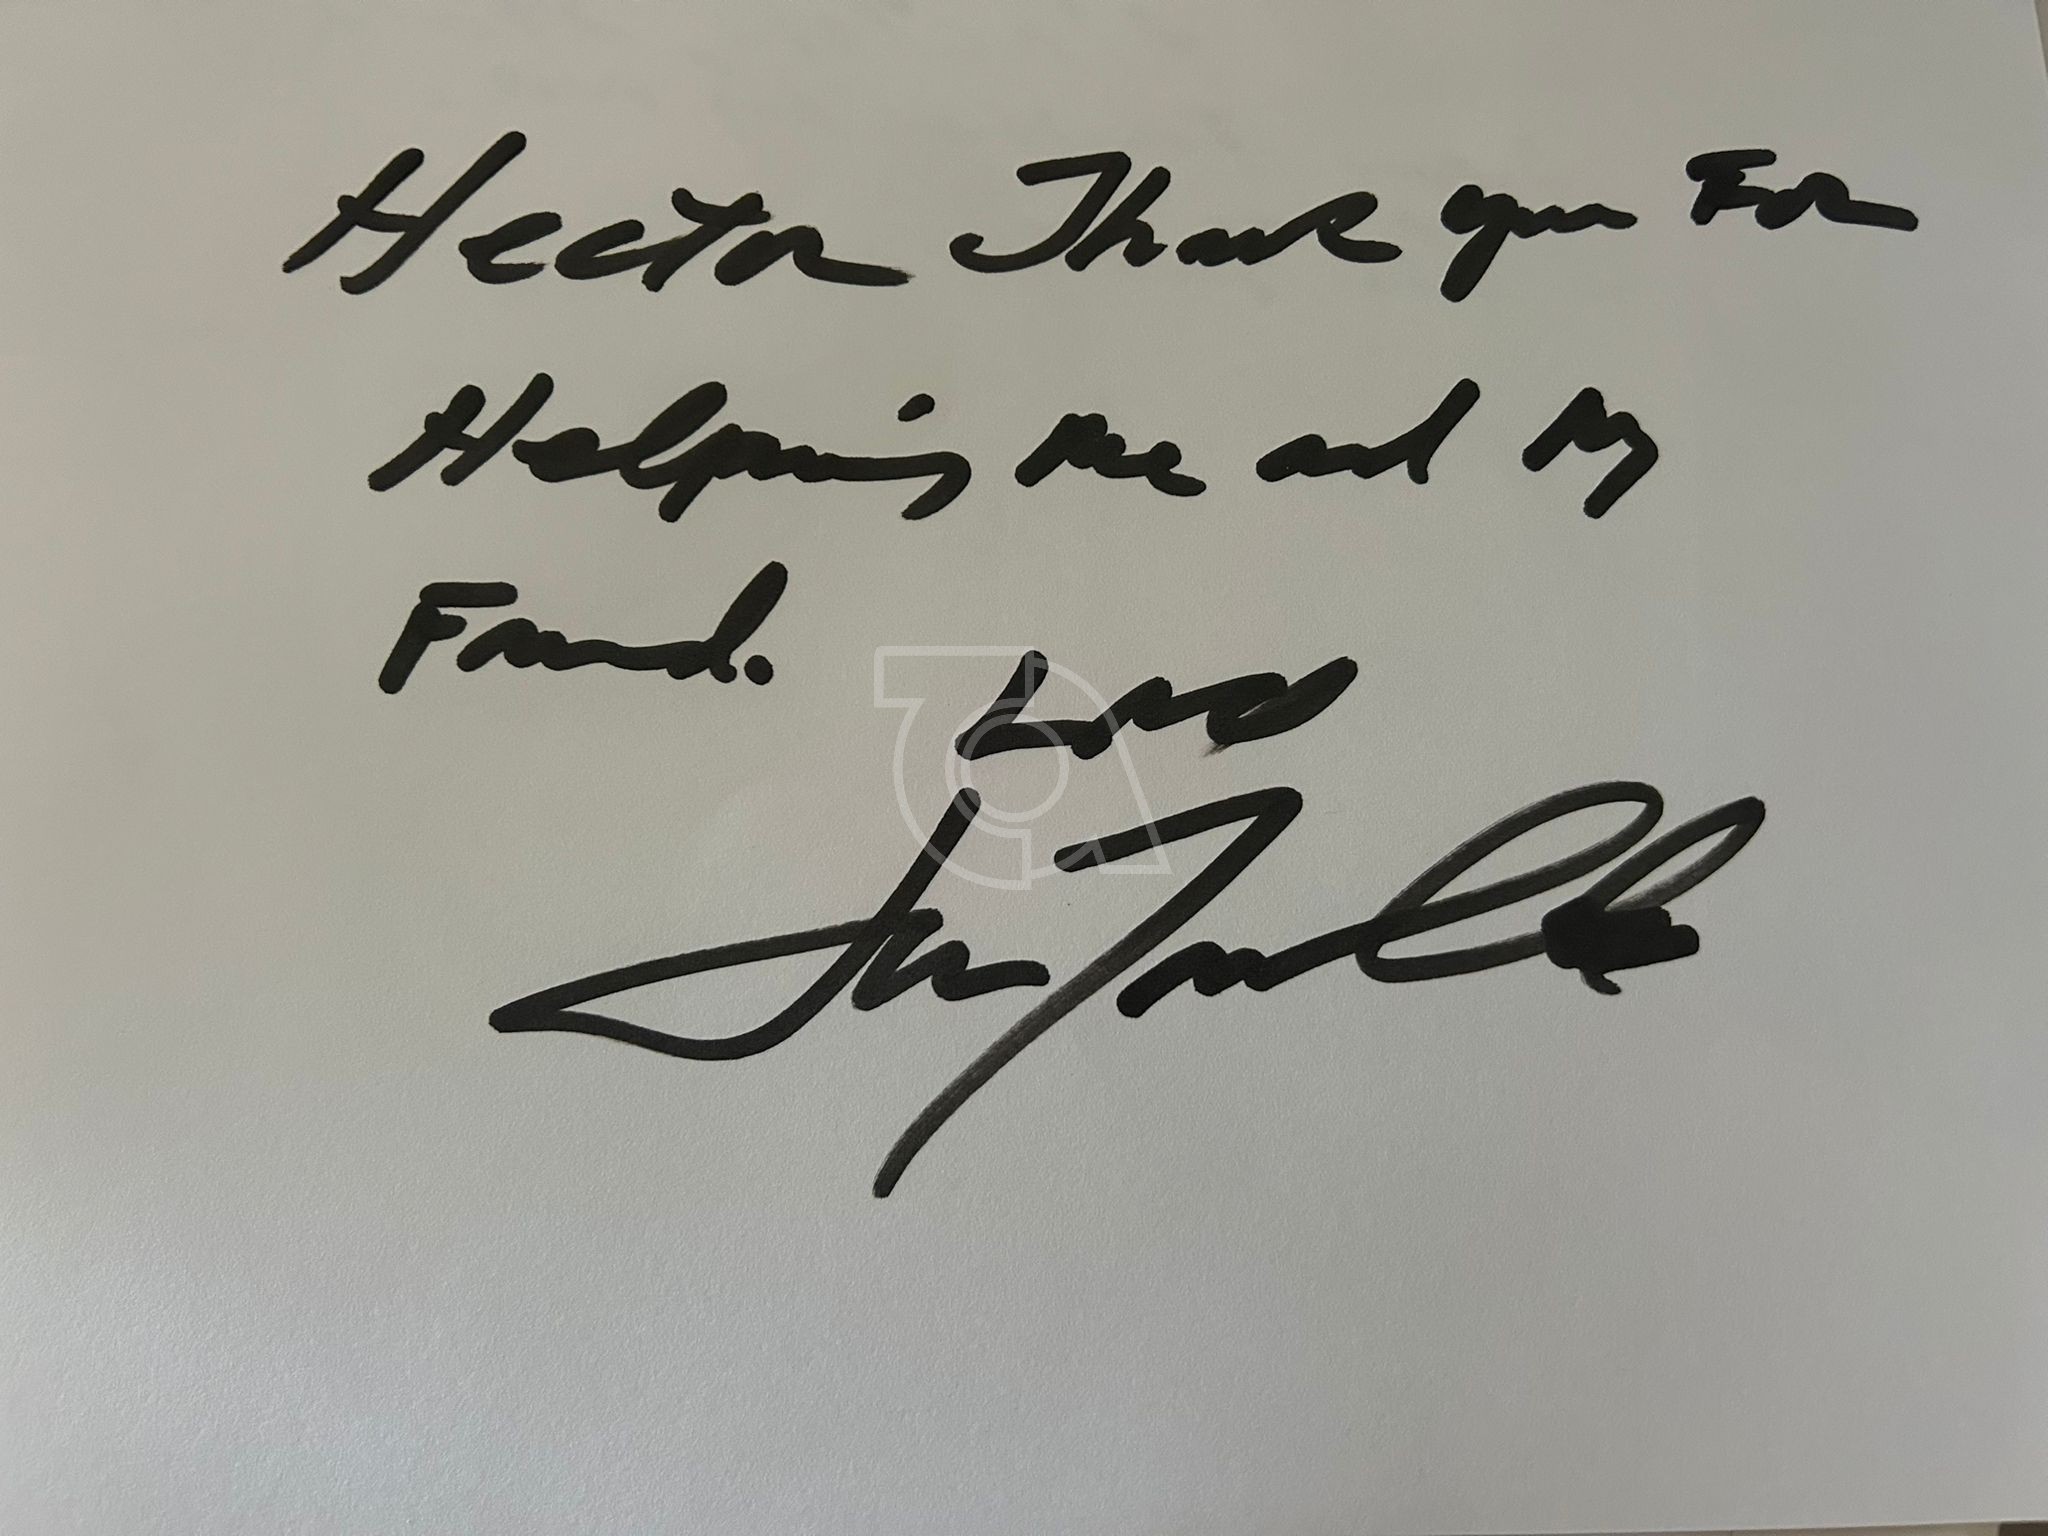 Hector Thank you For
Helping me and My
Friend.
Love